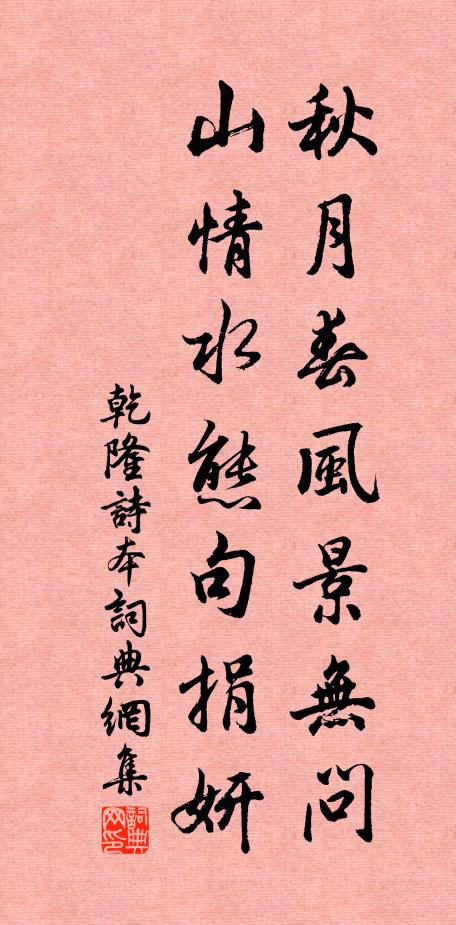 秋月春風景無問
山情水態句捐妍
乾隆詩本詞典網集
詞典网印